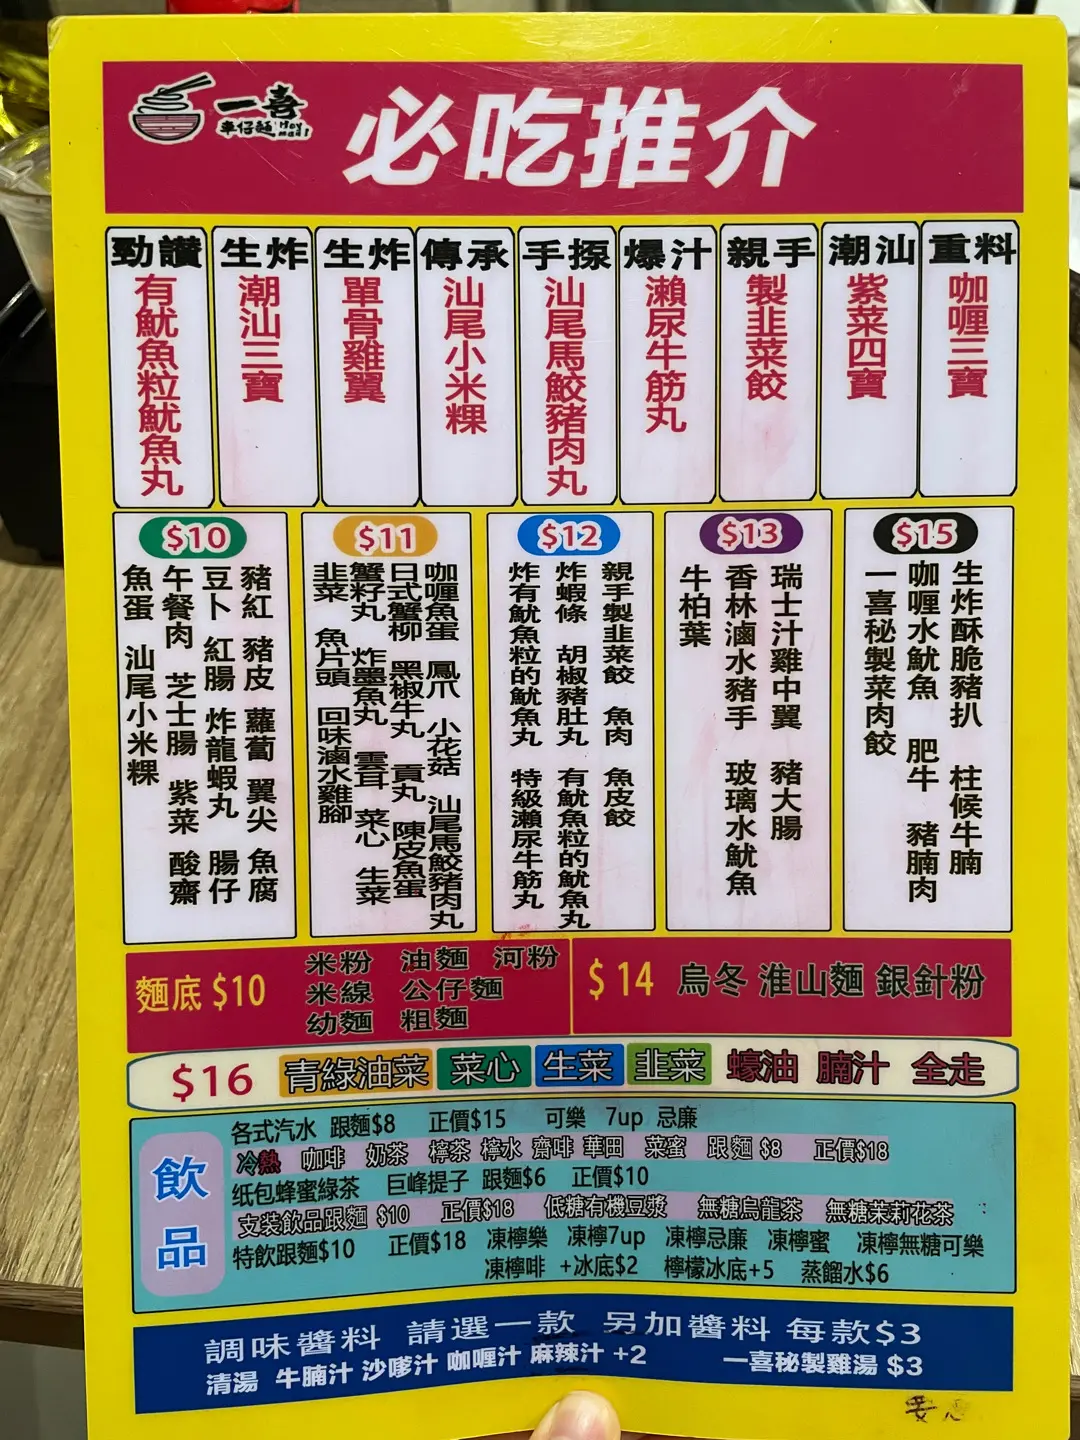 一喜
車仔麵
必吃推介
勁讚 有魷魚粒魷魚丸
生炸 潮汕三寶
生炸 單骨雞翼
傳承 汕尾小米粿
手揼 汕尾馬鮫豬肉丸
爆汁 瀨尿牛筋丸
親手 製韭菜餃
潮汕 紫菜四寶
重料 咖喱三寶
$10
豬紅 豬皮 蘿蔔 翼尖 魚腐
豆卜 紅腸 炸龍蝦丸 腸仔
午餐肉 芝士腸 紫菜 酸齋
魚蛋 汕尾小米粿
$11
咖喱魚蛋 鳳爪 小花菇 汕尾馬鮫豬肉丸
日式蟹柳 黑椒牛丸 貢丸 陳皮魚蛋
蟹籽丸 炸墨魚丸 雲耳 菜心 生菜
韭菜 魚片頭 回味滷水雞腳
$12
親手製韭菜餃 魚肉 魚皮餃
炸蝦條 胡椒豬肚丸 有魷魚粒的魷魚丸
炸有魷魚粒的魷魚丸 特級瀨尿牛筋丸
$13
瑞士汁雞中翼 豬大腸
香林滷水豬手 玻璃水魷魚
牛柏葉
$15
生炸酥脆豬扒 柱候牛腩
咖喱水魷魚 肥牛 豬腩肉
一喜秘製菜肉餃
麵底 $10
米粉 油麵 河粉
米線 公仔麵
幼麵 粗麵
$14 烏冬 淮山麵 銀針粉
$16 青綠油菜 菜心 生菜 韭菜 蠔油 腩汁 全走
飲品
各式汽水 跟麵$8 正價$15 可樂 7up 忌廉
冷熱 咖啡 奶茶 檸茶 檸水 齋啡 華田 菜蜜 跟麵 $8 正價$18
纸包蜂蜜綠茶 巨峰提子 跟麵$6 正價$10
支裝飲品跟麵 $10 正價$18 低糖有機豆漿 無糖烏龍茶 無糖茉莉花茶
特飲跟麵$10 正價$18 凍檸樂 凍檸7up 凍檸忌廉 凍檸蜜 凍檸無糖可樂
凍檸啡 +冰底$2 檸檬冰底+5 蒸餾水$6
調味醬料 請選一款 另加醬料 每款$3
清湯 牛腩汁 沙嗲汁 咖喱汁 麻辣汁 +2 一喜秘製雞湯 $3